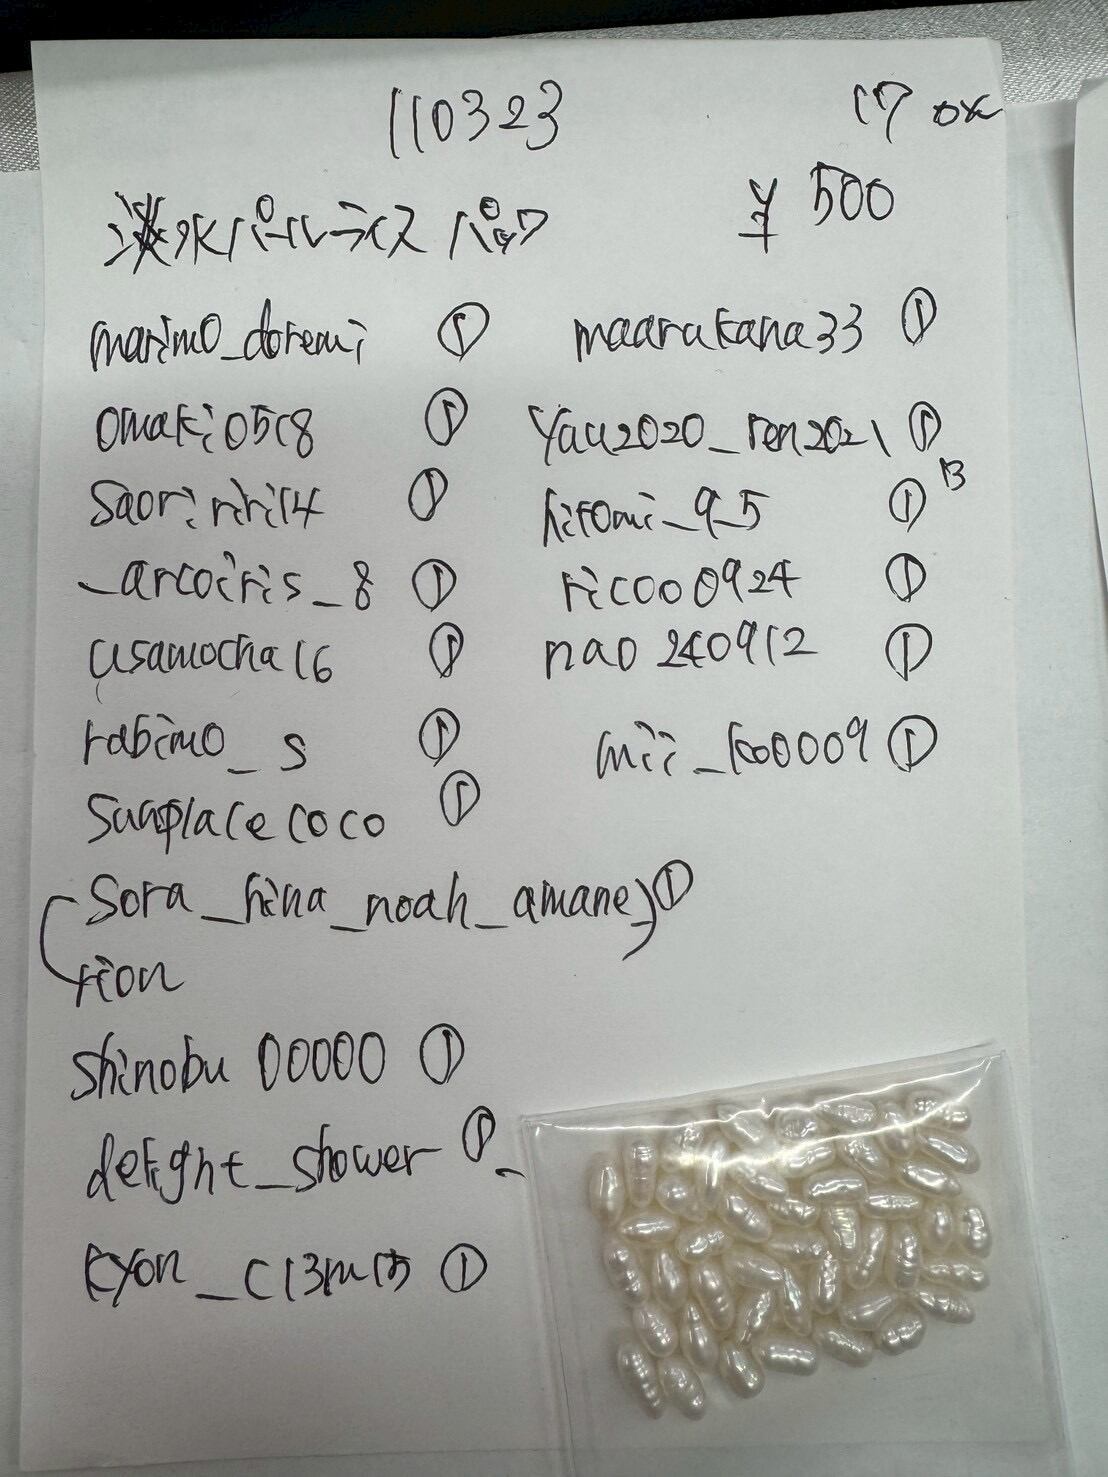 110323
17 ox
淡水パールライスパック
¥500
marimo_doremi ①
omaki0518 ①
saoririri14 ①
_arcoiris_8 ①
usamocha16 ①
rabimo_s ①
sunplacecoco ①
sora_hina_noah_amane_ ①
rion
shinobu00000 ①
delight_shower ①
kyon_c13m15 ①
maarukana33 ①
yau2020_ren2021 ①
13
hitomi_9_5 ①
ricooo0924 ①
nao240912 ①
mii_koo009 ①